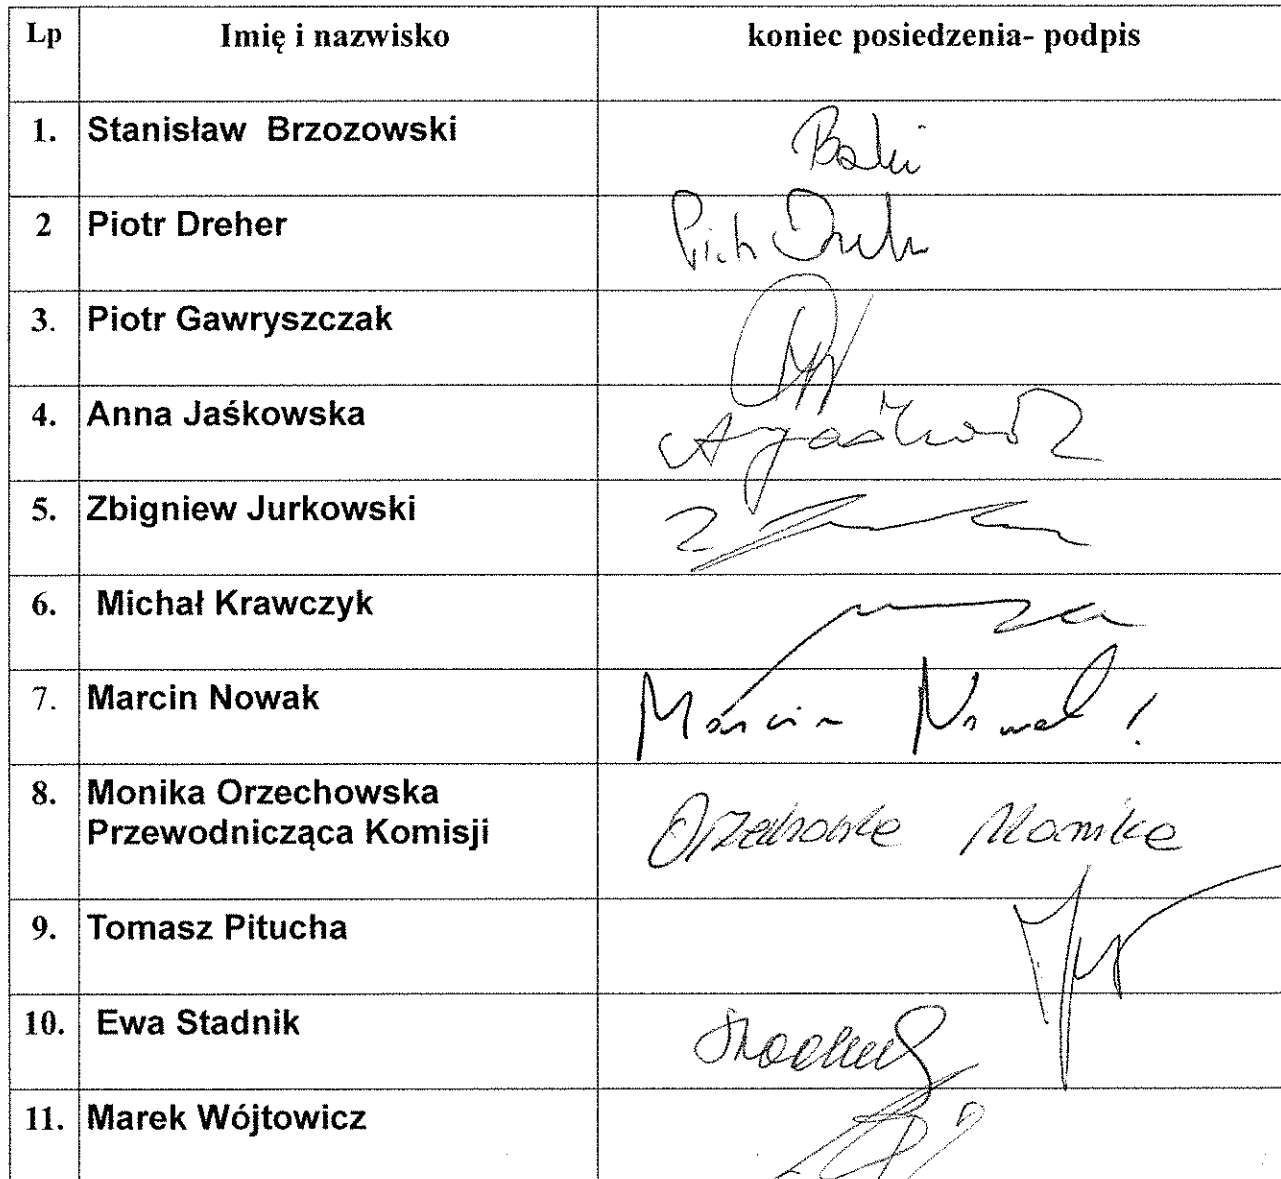 Lp Imię i nazwisko koniec posiedzenia- podpis
1. Stanisław Brzozowski
2 Piotr Dreher
3. Piotr Gawryszczak
4. Anna Jaśkowska
5. Zbigniew Jurkowski
6. Michał Krawczyk
7. Marcin Nowak Marcin Nowak !
8. Monika Orzechowska
Przewodnicząca Komisji Orzechowska Monika
9. Tomasz Pitucha
10. Ewa Stadnik
11. Marek Wójtowicz